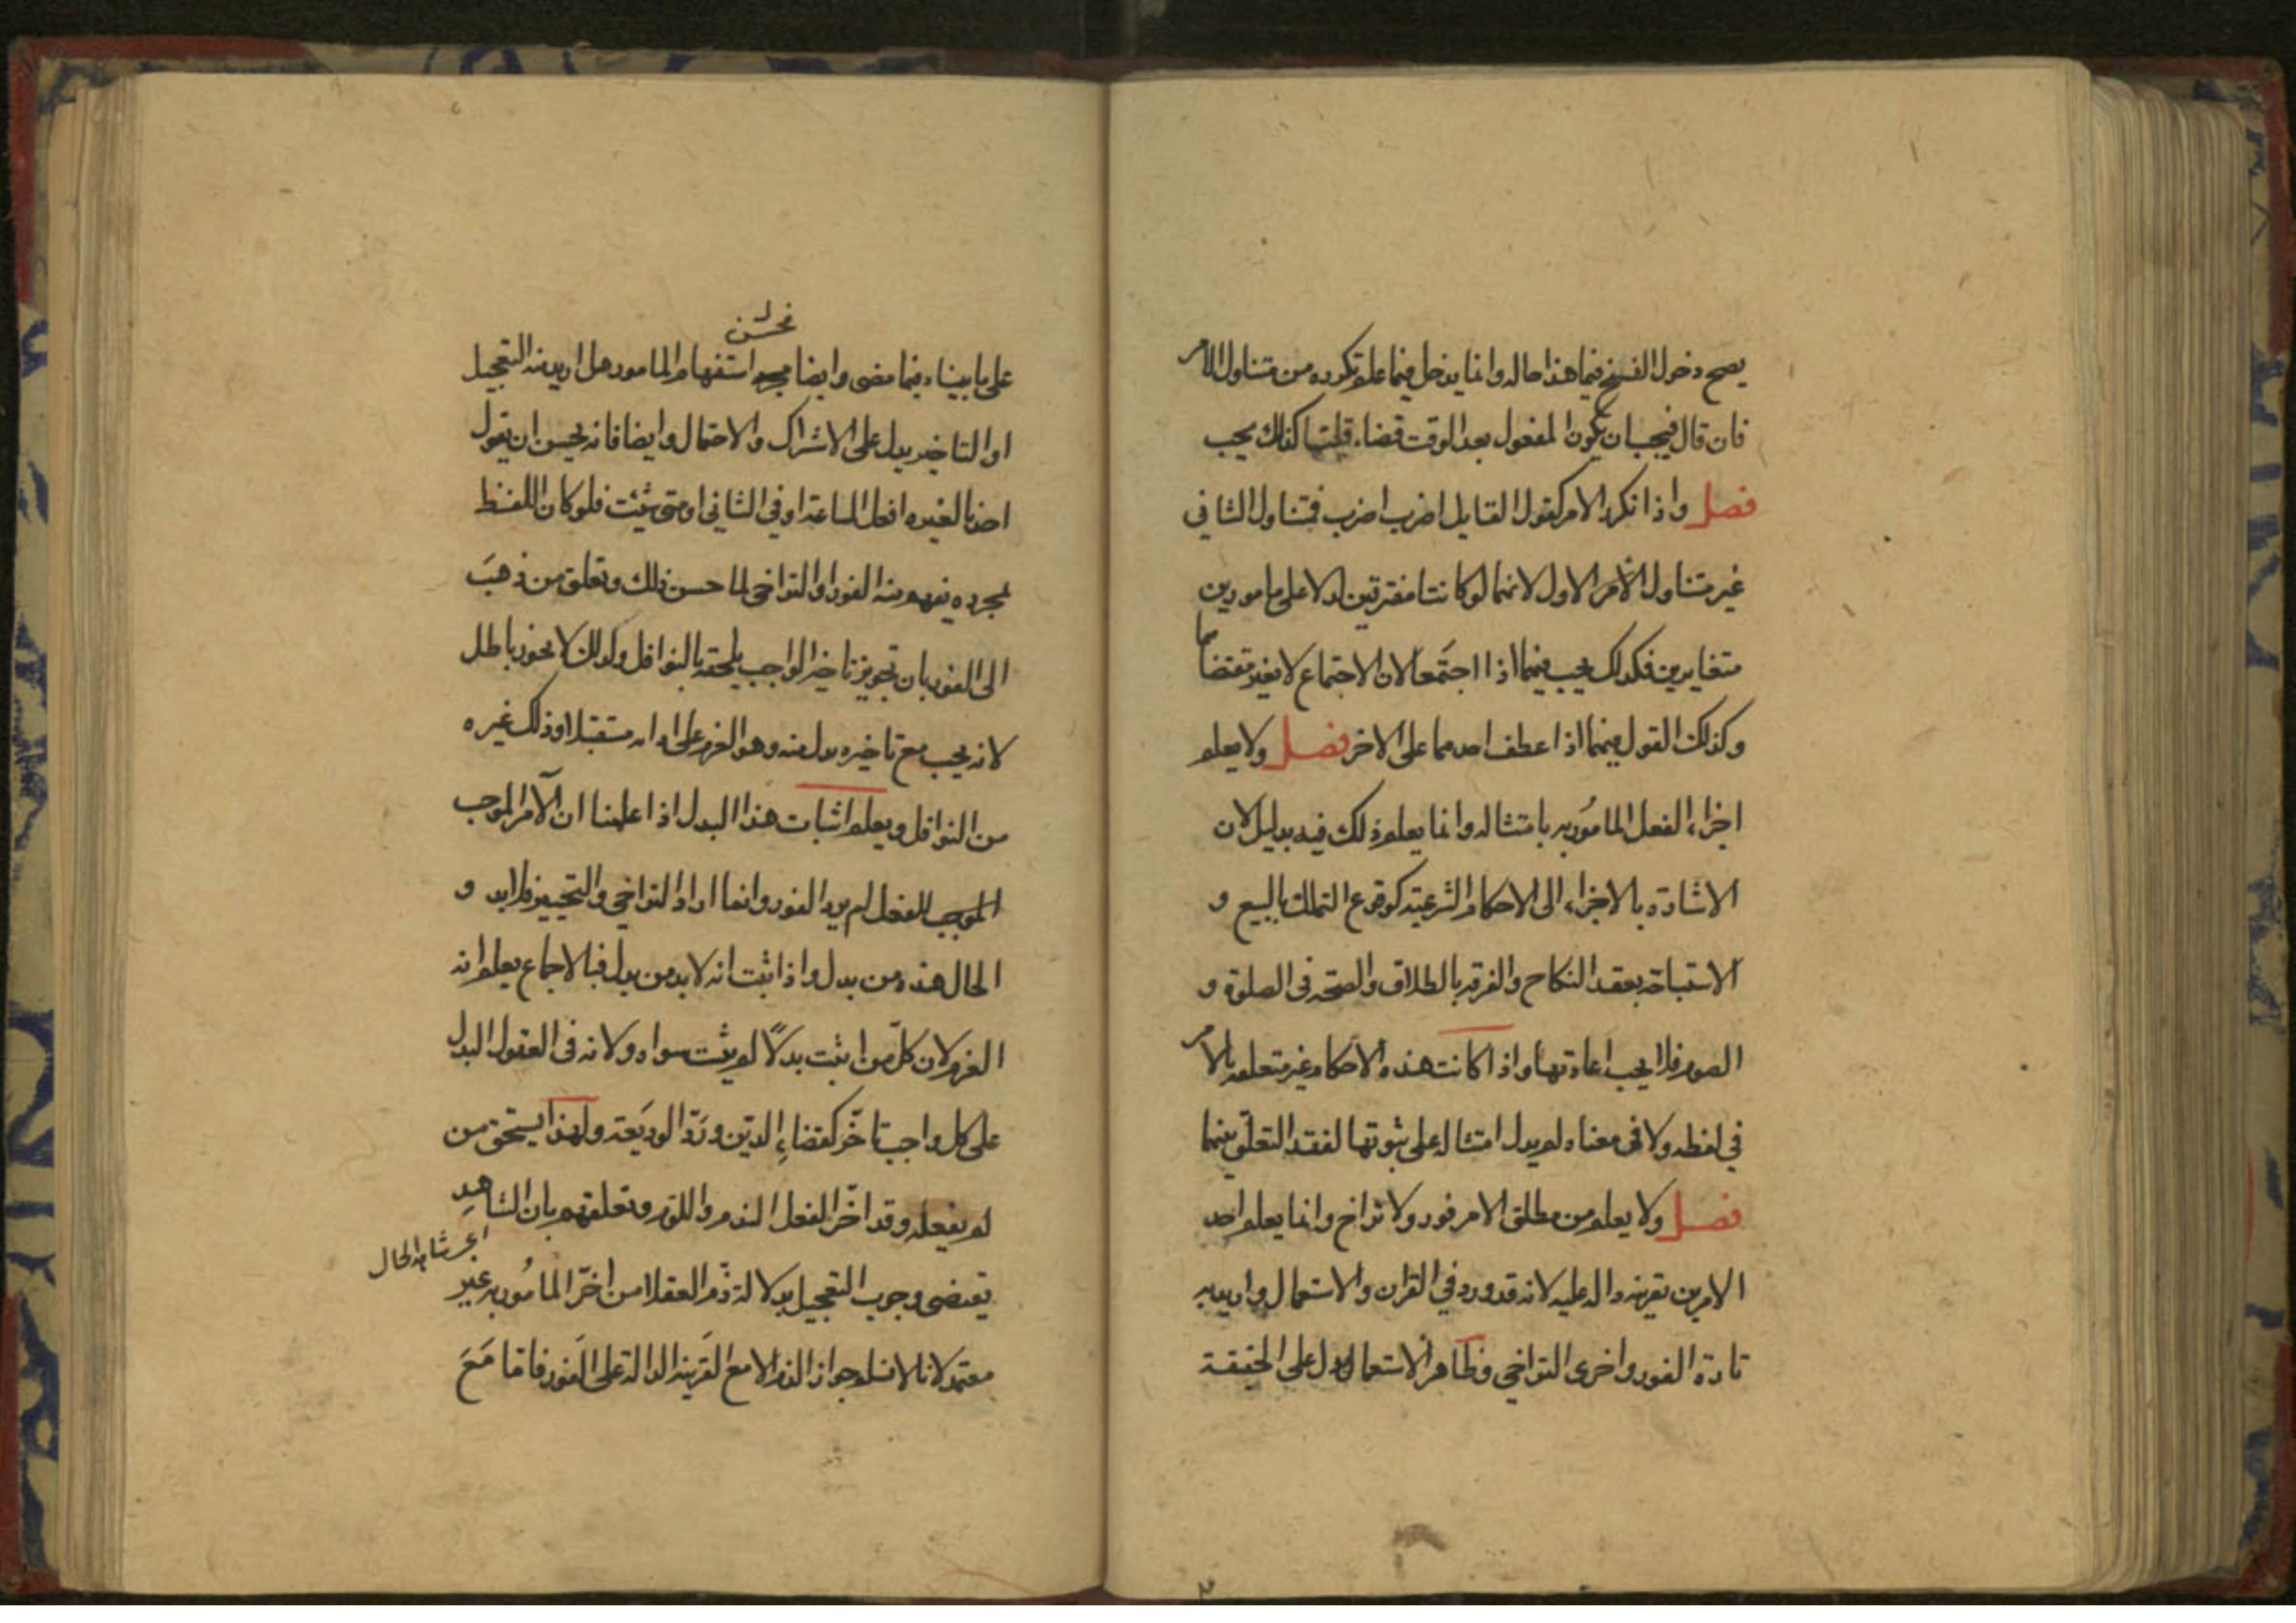 يصح دخول الفسخ فيما هذا حاله وانما يدخل فيما علم تكرره من متناول الامر
فان قال فيجب ان يكون المفعول بعد الوقت قضاء قلنا كذلك يجب
فصل واذا تكرر الامر كقول القايل اضرب اضرب فمتناول الثاني
غير متناول الأمر الاول لانهما لو كانتا مفترقتين لدلا على مامورين
متغايرين فكذلك يجب فيهما اذا اجتَمعا لان الاجتماع لا يغير مقتضاهما
وكذلك القول فيهما اذا عطف احدهما على الاخر فصل ولا يعلم
اجزاء الفعل المامُور به بامتثاله وانما يعلم ذلك فيه بدليل لان
الاشارة بالاجزاء الى الاحكام الشرعية كوقوع التملك بالبيع و
الاستباحة بعقد النكاح والفرقة بالطلاق والصحة في الصلوة و
الصوم فلا يجب اعادتها واذا كانت هذه الاحكام غير متعلقه بالامر
في لفظه ولا في معناه لم يدل امتثاله على ثبوتها لفقد التعلّق بينهما
فصل ولا يعلم من مطلق الامر فور ولا تراخ وانما يعلم احد
الامرين بقرينه داله عليه لانه قد ورد في القران والاستعمال واريد به
تارة الفور واخرى التراخي وظاهر الاستعمال يدل على الحقيقة
فحسْن
على ما بيناه فيما مضى وايضا استفهام المامور هل اريد منه التعجيل
او التاخير يدل على الاشتراك والاحتمال وايضا فانه يحسن ان يقول
احدنا لغيره افعل الساعة او في الثاني او متى شئت فلو كان اللفظ
بمجرده يفهم منه الفور او التراخي لما حسن ذلك وتعلق من ذهبَ
الى الفور بان تجويز تاخير الواجب يلحقه بالنوافل وكذلك لا يجوز باطل
لانه يجب مع تاخيره بدل منه وهو العزم على ادائه مستقبلا وذلك غيره
من النوافل ويعلم اثبات هذا البدل اذا علمنا ان الآمر الموجب
الموجب للفعل لم يرد الفور وانما اراد التراخي والتخيير فلا بد و
الحال هذه من بدل واذا ثبت انه لا بد من بدل فبالاجماع يعلم انه
العزم لان كلّ من اثبت بدلاً لم يثبت سواه ولانه في العقول البدل
على كل واجب تاخّر كقضاءِ الديَن ورَدّ الوديَعة ولهذا يستحق من
لم يفعله وقد اخّر الفعل الذم واللوم وتعلقهم بان الشاهد
يقتضي وجوب التعجيل بدلالة ذّم العقلا من اخّر المامُور به غير
معتمد لانا لا نسلم جواز الذم الا مع القَرينه الدالة على الفَور فاما مَعَ